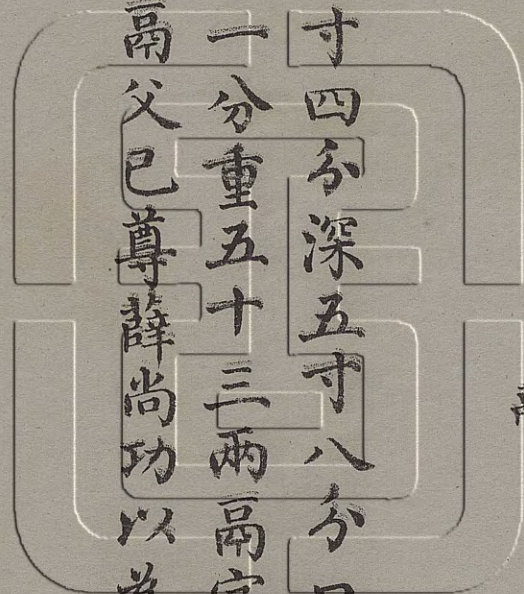 寸四分深五寸八分口
一分重五十三兩鬲字
鬲父己尊薛尚功以為